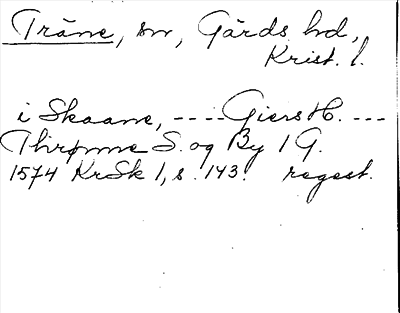 Träne, sn, Gärds hd,
Krist. l.
i Skaane, ---- Giers H. ---
Thirønne S. og By 1 G.
1574 KrSk 1, s. 143. regest.